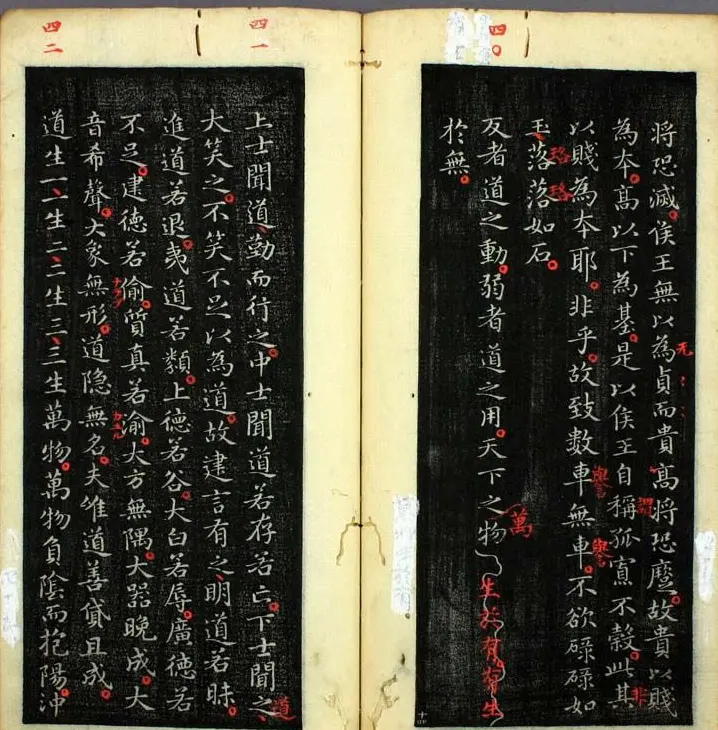 四〇
將恐滅侯王無以為貞而貴髙將恐故貴以賤
无
為夲髙以下為基是以侯王自稱孤寡不穀此其
謂
非
以賤為夲耶非乎故致數車無車不欲碌碌如
譽
譽
玉落落如石
珞珞
反者道之動弱者道之用天下之物
萬
生於有有生
於無
四一
上士聞道勤而行之中士聞道若存若亡下士聞之
道
大笑之不笑不足以為道故建言有之明道若昧
進道若退夷道若類上德若谷大白若辱廣德若
不足建德若偷質真若渝大方無隅大器晚成大
音希聲大象無形道隐無名夫唯道善貸且成
四二
道生一一生二二生三三生萬物萬物負陰而抱陽沖